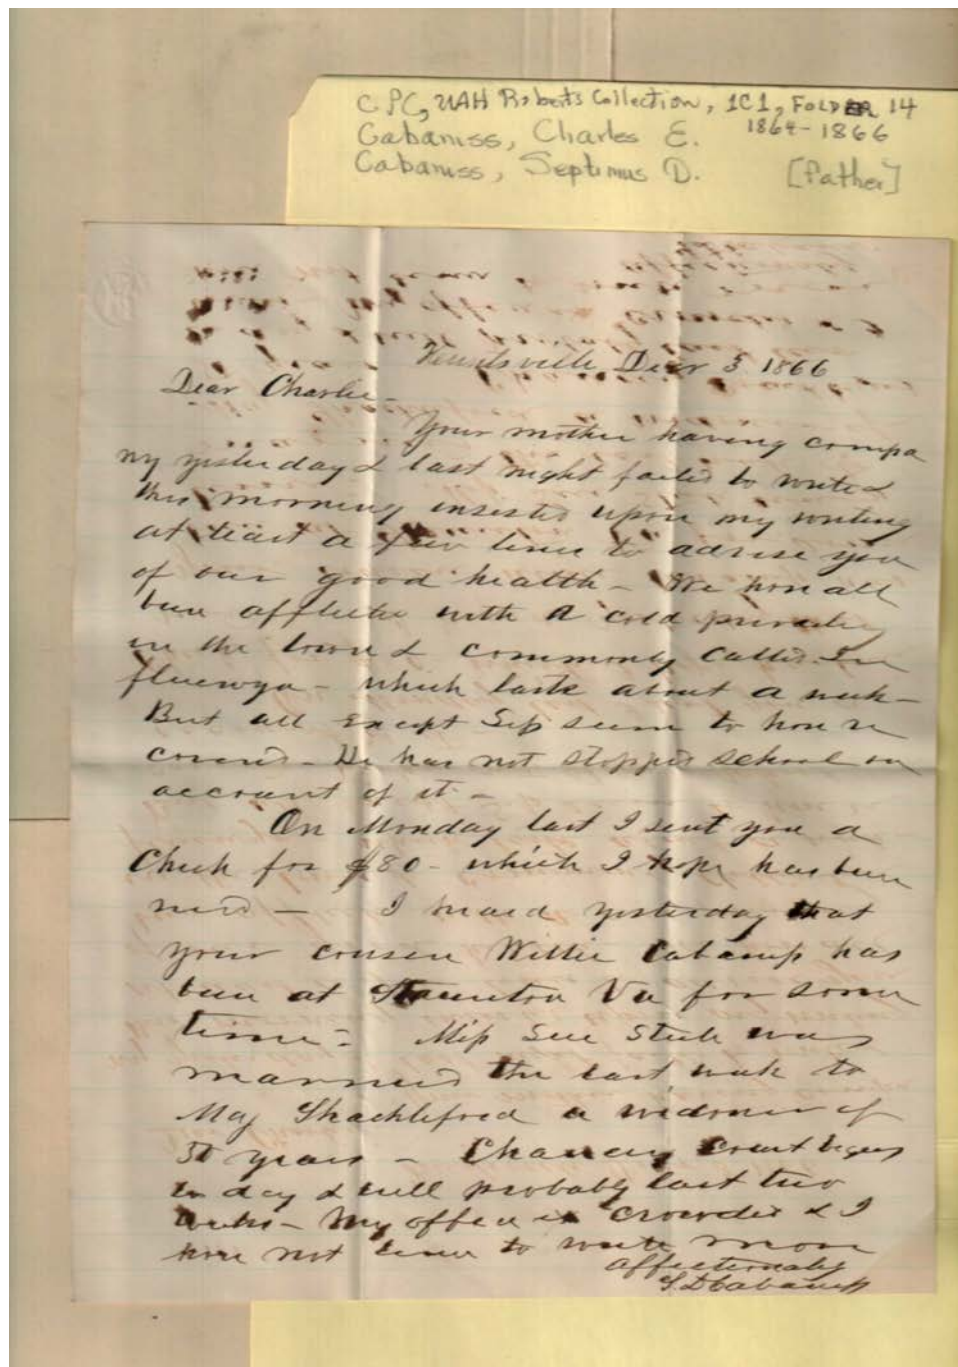 CPC, UAH Roberts Collection, 1C1, FOLDER 14
Cabaniss, Charles E. 1864-1866
Cabaniss, Septimus D. [father]
Huntsville Decr 3 1866
Dear Charlie -
Your mother having compa
ny yesterday & last night failed to write &
this morning insisted upon my writing
at least a few lines to advise you
of our good health - We have all
been afflicted with a cold prevailing
in the town & commonly called In
fluenza - which lasts about a week -
But all except Sep seem to have re
covered - He has not stopped school on
account of it -
On Monday last I sent you a
Check for $80 - which I hope has been
recd - I heard yesterday that
your cousin Willie Cabaniss has
been at Staunton Va for some
time - Miss Sue Steele was
married the last week to
Maj Shacklefred a widower of
50 years - Chancery Court begins
to day & will probably last two
weeks - My office is crowded & I
have not time to write more
Affectionately
S. D. Cabaniss